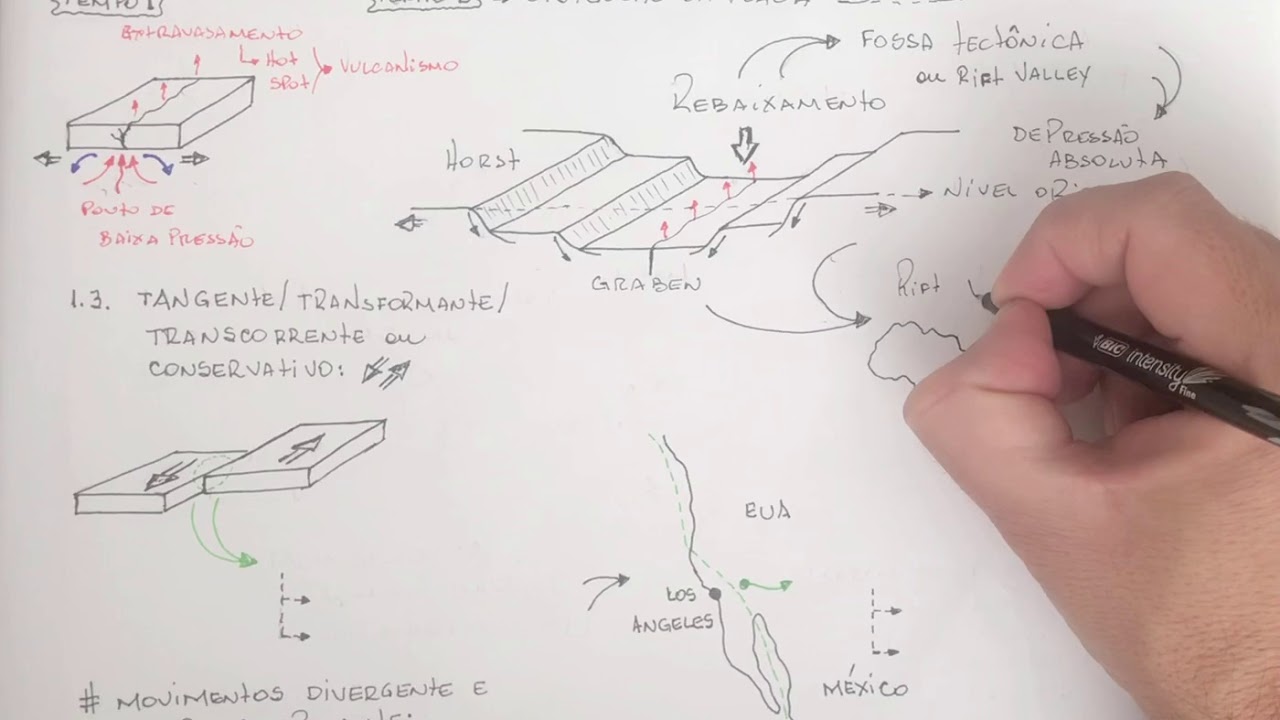 TEMPO 1
EXTRAVASAMENTO
HOT
SPOT
VULCANISMO
PONTO DE
BAIXA PRESSÃO
HORST
REBAIXAMENTO
FOSSA TECTÔNICA
ou RIFT VALLEY
DEPRESSÃO
ABSOLUTA
NÍVEL
GRABEN
RIFT
BIC intensity
Fine
1.3. TANGENTE/TRANSFORMANTE/
TRANSCORRENTE ou
CONSERVATIVO:
EUA
LOS
ANGELES
MÉXICO
# MOVIMENTOS DIVERGENTE E